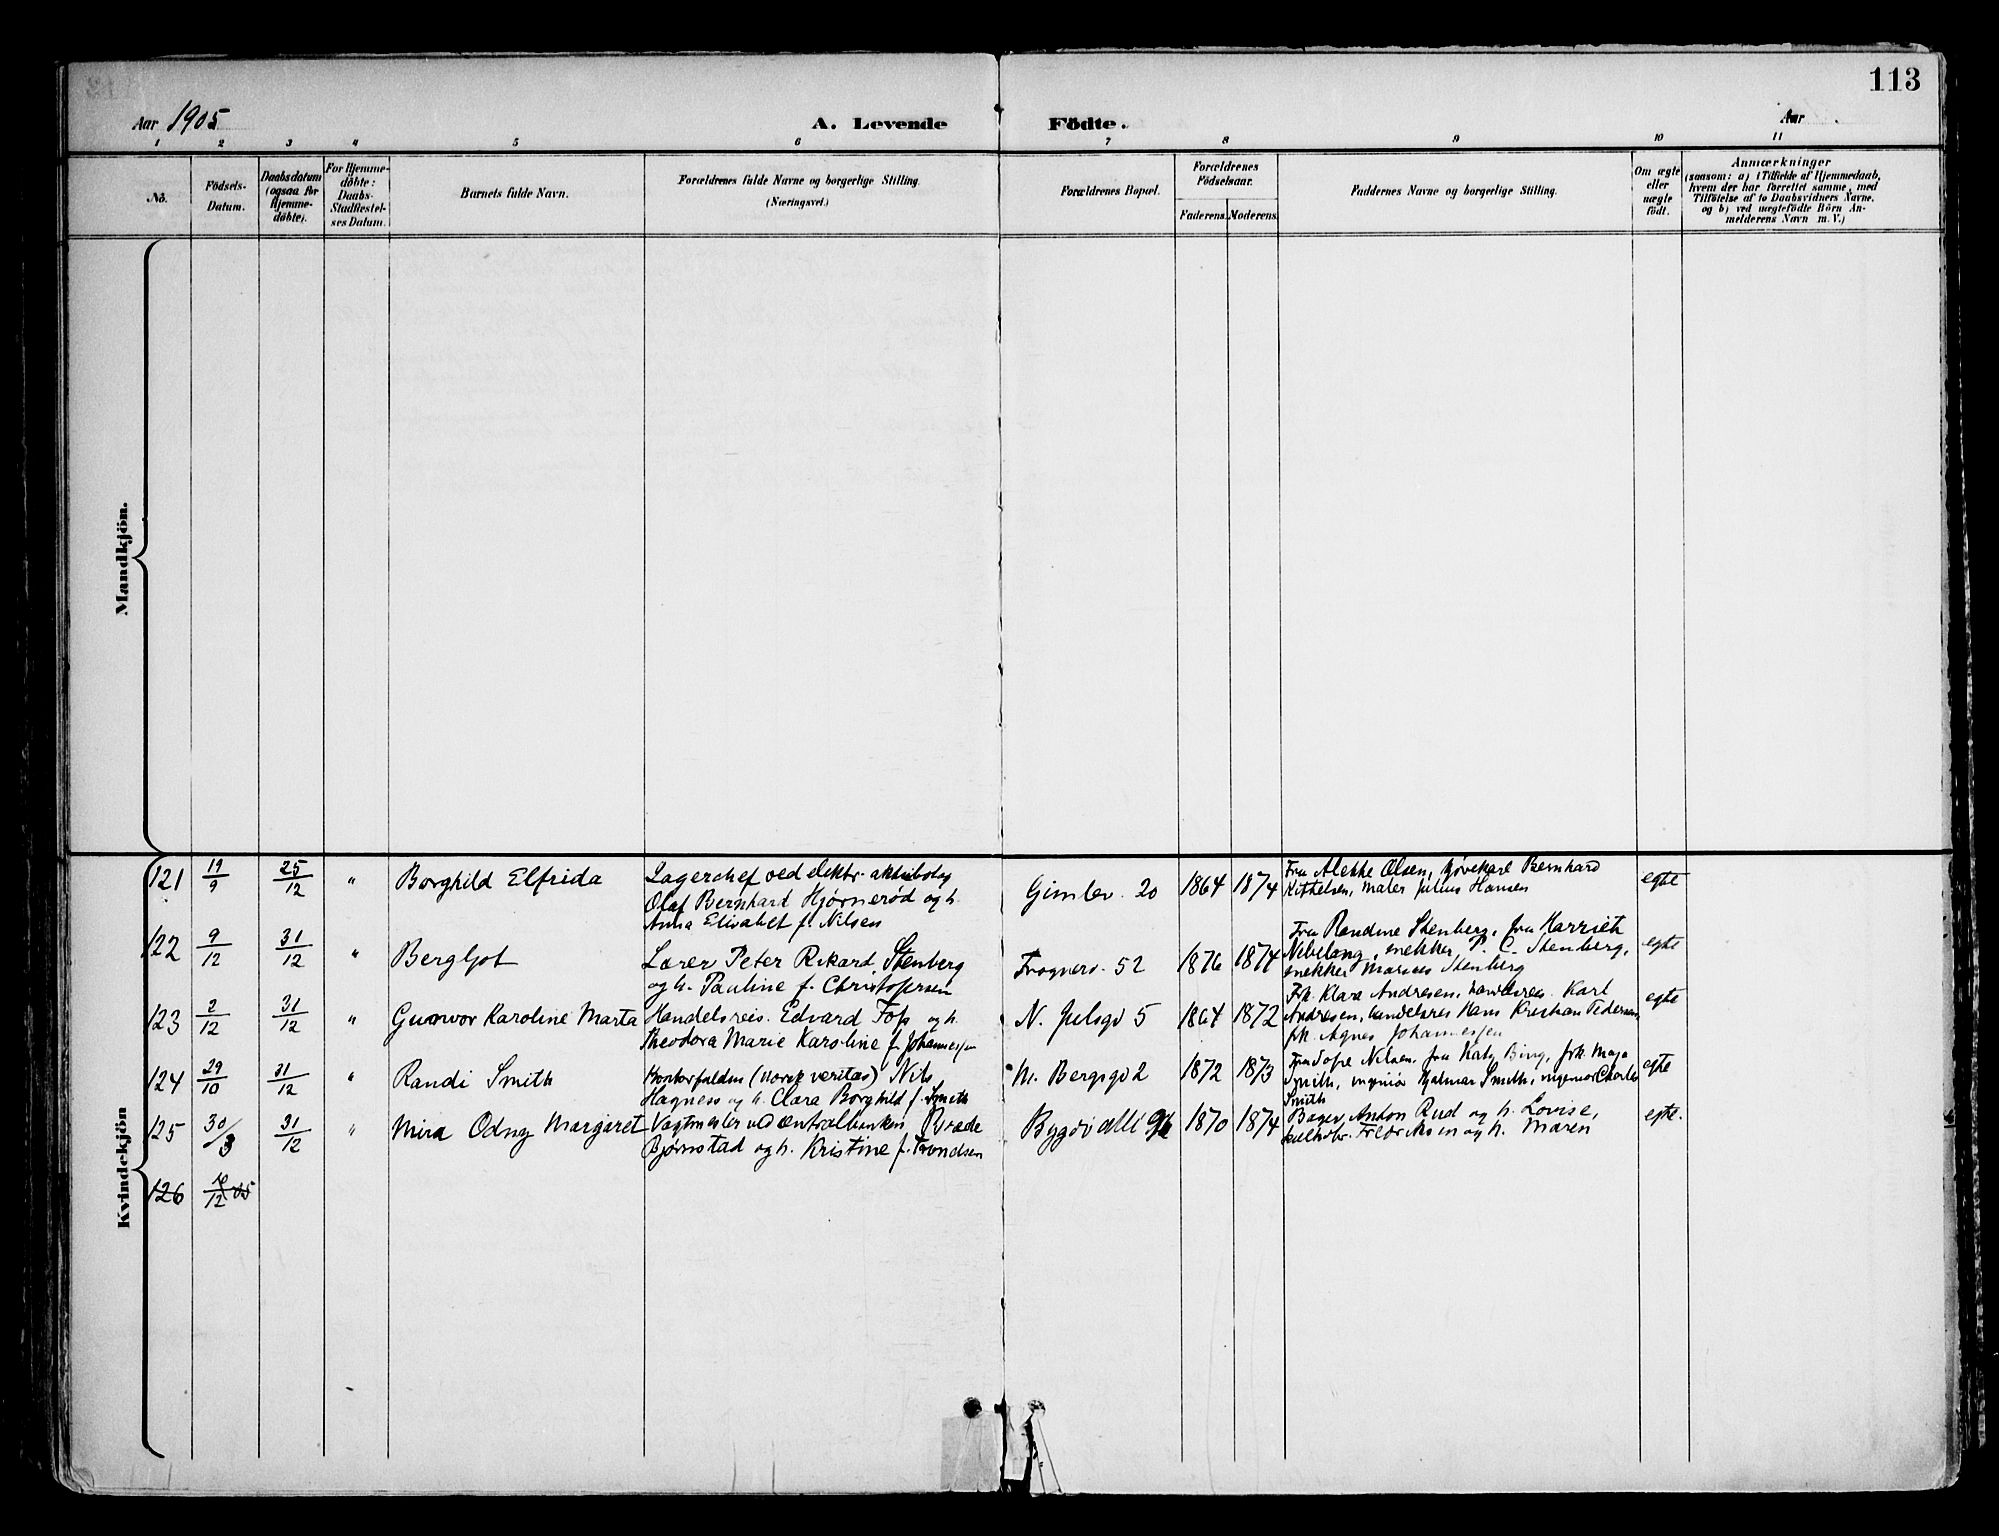 113
Aar 1905
A. Levende Födte.
Aar
1 2 3 4 5 6 7 8 9 10 11
No.
Födsels-Datum.
Daabsdatum (ogsaa for Hjemme-döbte).
For Hjemme-döbte: Daabs-Stadfæstel-ses Datum.
Barnets fulde Navn.
Forældrenes fulde Navne og borgerlige Stilling.
(Næringsvei.)
Forældrenes Bopæl.
Forældrenes Födselsaar.
Faderens. Moderens.
Faddernes Navne og borgerlige Stilling.
Om ægte eller uægte födt.
Anmærkninger
(saasom: a) i Tilfælde af Hjemmedaab,
hvem der har forrettet samme, med
Tilföielse af to Daabsvidners Navne,
og b) ved uægtefödte Börn An-
melderens Navn m. V.)
Mandkjön.
Kvindekjön
121 19/9 25/12 " Borghild Elfrida
Lagerchef ved elektr. aktiebolag
Olaf Bernhard Hjørnerød og h.
Anna Elisabet f. Nilsen
Gimlev. 20 1864 1874
Fru Alekke Olsen, Bernhard
Kittelsen, maler Julius Hansen
egte
122 9/12 31/12 " Bergljot
Lærer Peter Rikard Stenberg
og h. Pauline f. Christofersen
Frognerv. 52 1876 1874
Fru Randine Stenberg, fru Harriet
Nibelang, snekker P. C. Stenberg,
snekker Marius Stenberg
egte
123 2/12 31/12 " Gunvor Karoline Marta
Handelsreis. Edvard Foss og h.
Theodora Marie Karoline f. Johannessen
N. Julsgd 5 1864 1872
Frk. Klara Andresen, handelsreis. Karl
Andresen, handelsreis Hans Kristian Pedersen,
frk. Agnes Johannessen
egte
124 29/10 31/12 " Randi Smith
Kontorfuldm (norsk veritas) Nils
Hagness og h. Clara Borghild f. Smith
M. Bergsgd 2 1872 1873
Fru Sofie Nilsen, fru Katy Bing, frk. Maja
Smith, ingeniør Hjalmar Smith, ingeniør Charles
Smith
egte
125 30/3 31/12 " Mira Odny Margaret
Vagtmester ved Centralbanken
Bjørnstad og h. Kristine f. Trondsen
Bygdø allé 1870 1874
Bager Anton Rud og h. Lovise,
Fredriksen og h. Maren
egte.
126 16/12 05